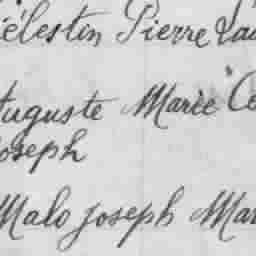 Célestin Pierre Lau
Auguste Marie Cé
Joseph
Malo Joseph Mar